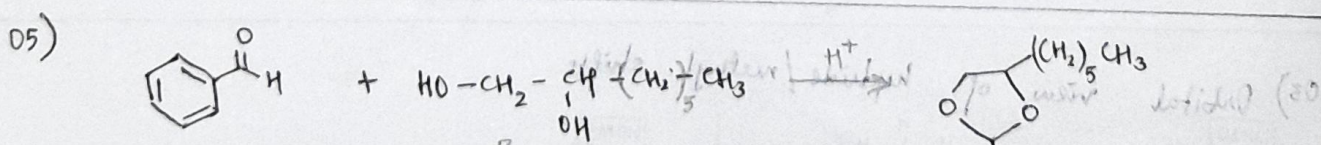 05)
O
H + HO-CH2-CH-(CH2)5-CH3 H+ (CH2)5CH3
OH
O O